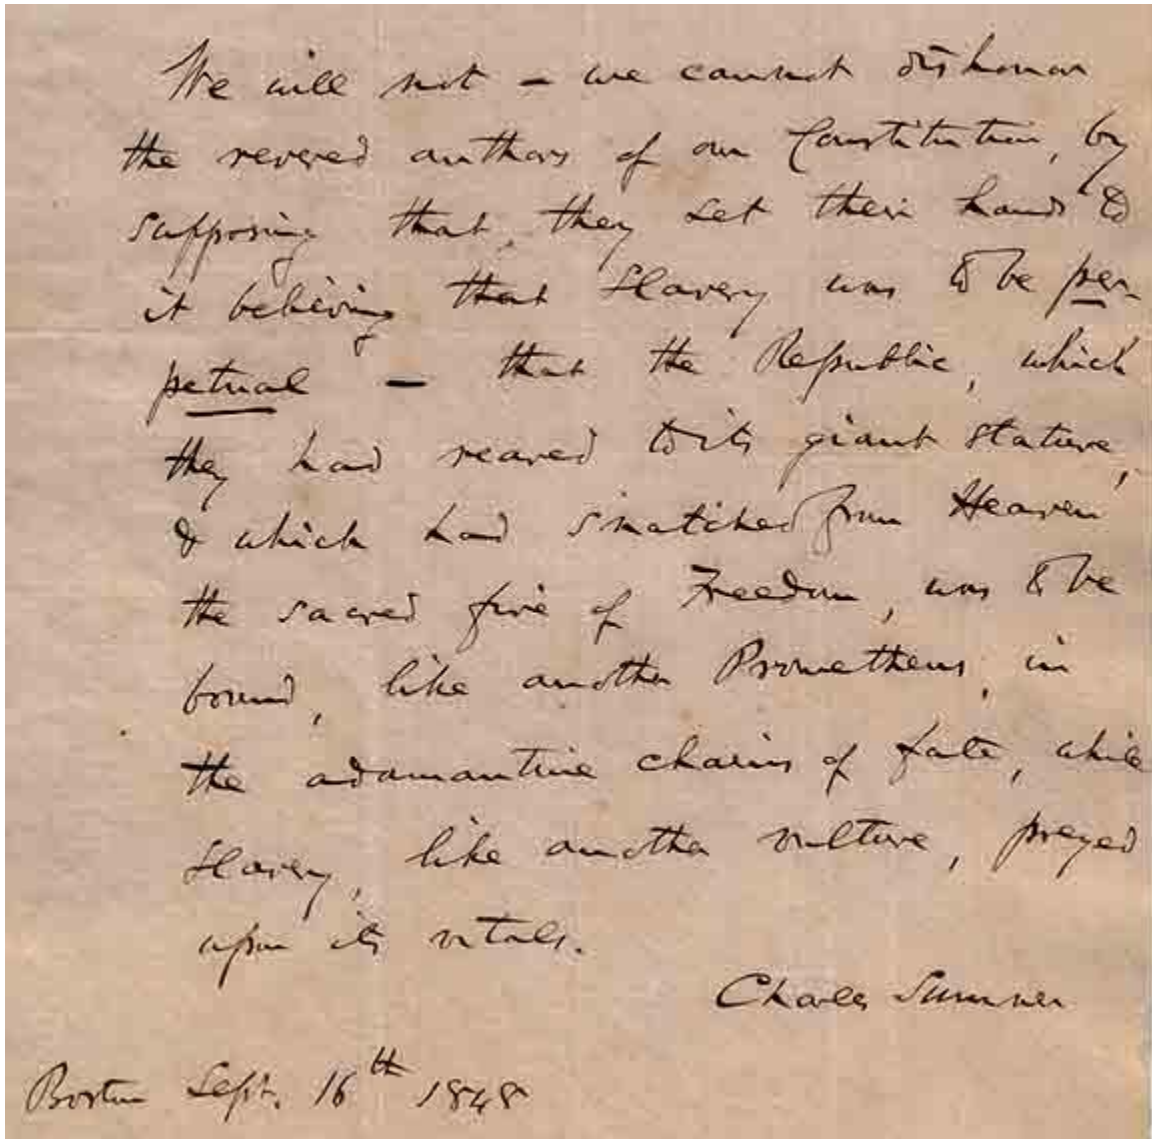 We will not – we cannot dishonor
the revered authors of our Constitution, by
supposing that they set their hands to
it believing that Slavery was to be per-
petual — that the Republic, which
they had reared to its giant stature,
& which had snatched from Heaven
the sacred fire of Freedom, was to be
bound, like another Prometheus, in
the adamantine chains of fate, while
Slavery, like another vulture, preyed
upon its vitals.
Charles Sumner
Boston Sept. 16th 1848